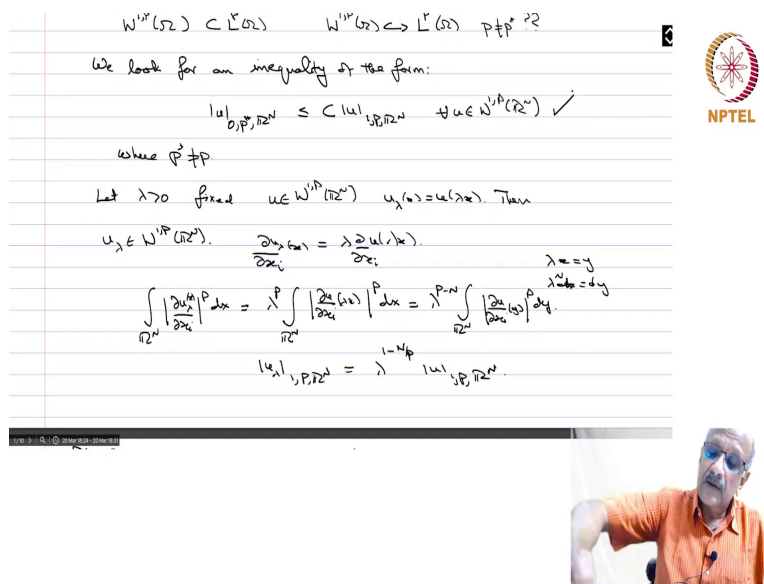 W^{1,p}(Ω) ⊂ L^p(Ω) W^{1,p}(Ω) ↪ L^{p*}(Ω) p ≠ p* ??
We look for an inequality of the form:
|u|_{0,p*,ℝ^N} ≤ C |u|_{1,p,ℝ^N} ∀ u ∈ W^{1,p}(ℝ^N) ✓
where p* ≠ p.
Let λ>0 fixed u ∈ W^{1,p}(ℝ^N) u_λ(x) = u(λx). Then
u_λ ∈ W^{1,p}(ℝ^N). ∂u_λ/∂x_i (x) = λ ∂u/∂x_i (λx).
λx = y
λ^N dx = dy
∫_{ℝ^N} |∂u_λ/∂x_i (x)|^p dx = λ^p ∫_{ℝ^N} |∂u/∂x_i (λx)|^p dx = λ^{p-N} ∫_{ℝ^N} |∂u/∂x_i (y)|^p dy.
|u_λ|_{1,p,ℝ^N} = λ^{1-N/p} |u|_{1,p,ℝ^N}.
NPTEL
1/10 20 Mar 18:24 - 20 Mar 18:31